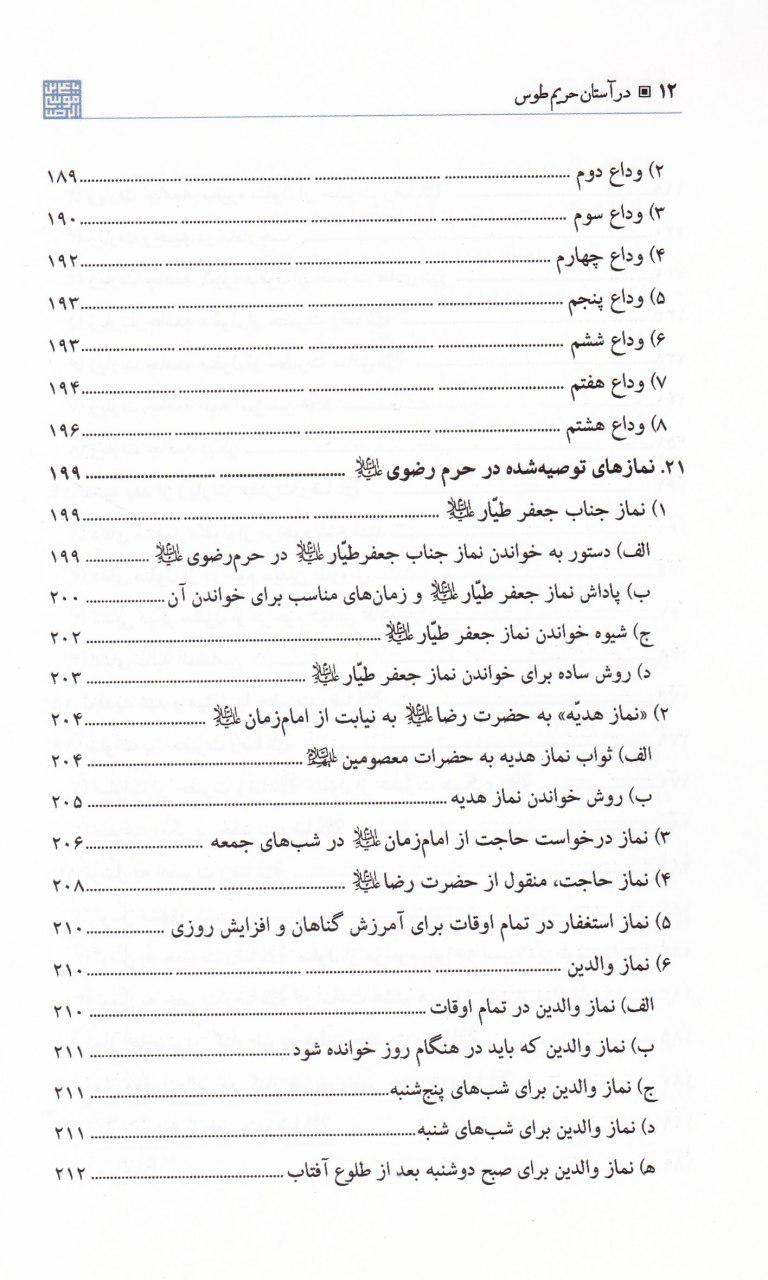 ۱۲ ▣ در آستان حریم طوس
۲) وداع دوم ........ ۱۸۹
۳) وداع سوم ........ ۱۹۰
۴) وداع چهارم ........ ۱۹۲
۵) وداع پنجم ........ ۱۹۳
۶) وداع ششم ........ ۱۹۳
۷) وداع هفتم ........ ۱۹۴
۸) وداع هشتم ........ ۱۹۶
۲۱. نمازهای توصیه‌شده در حرم رضوی علیه‌السلام ........ ۱۹۹
۱) نماز جناب جعفر طیّار علیه‌السلام ........ ۱۹۹
الف) دستور به خواندن نماز جناب جعفرطیّار علیه‌السلام در حرم‌رضوی علیه‌السلام ........ ۱۹۹
ب) پاداش نماز جعفر طیّار علیه‌السلام و زمان‌های مناسب برای خواندن آن ........ ۲۰۰
ج) شیوه خواندن نماز جعفر طیّار علیه‌السلام ........ ۲۰۲
د) روش ساده برای خواندن نماز جعفر طیّار علیه‌السلام ........ ۲۰۳
۲) «نماز هدیّه» به حضرت رضا علیه‌السلام به نیابت از امام‌زمان علیه‌السلام ........ ۲۰۴
الف) ثواب نماز هدیه به حضرات معصومین علیهم‌السلام ........ ۲۰۴
ب) روش خواندن نماز هدیه ........ ۲۰۵
۳) نماز درخواست حاجت از امام‌زمان علیه‌السلام در شب‌های جمعه ........ ۲۰۶
۴) نماز حاجت، منقول از حضرت رضا علیه‌السلام ........ ۲۰۸
۵) نماز استغفار در تمام اوقات برای آمرزش گناهان و افزایش روزی ........ ۲۱۰
۶) نماز والدین ........ ۲۱۰
الف) نماز والدین در تمام اوقات ........ ۲۱۰
ب) نماز والدین که باید در هنگام روز خوانده شود ........ ۲۱۱
ج) نماز والدین برای شب‌های پنج‌شنبه ........ ۲۱۱
د) نماز والدین برای شب‌های شنبه ........ ۲۱۱
ه‍) نماز والدین برای صبح دوشنبه بعد از طلوع آفتاب ........ ۲۱۲